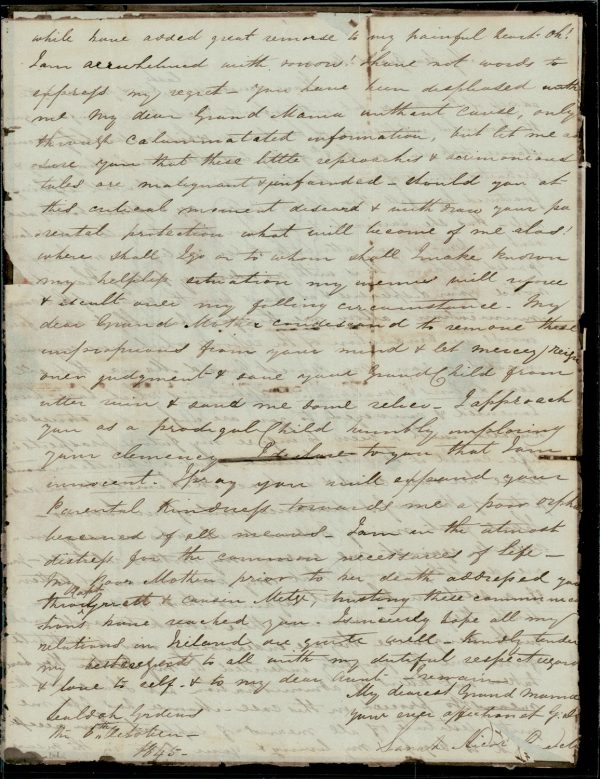 while have added great remorse to my painful heart. Oh!
I am overwhelmed with sorrow! I have not words to
express my regret – you have been displeased with
me my dear Grand Mama without cause, only
through calumniatated information, but let me as
sure you that these little reproaches & acrimonious
tales are malignant & unfounded – should you at
this critical moment discard & withdraw your pa
rental protection what will become of me alas!
where shall I go or to whom shall I make known
my helpless situation my enemies will
& exult over my falling circumstance. My
dear Grand Mother condescend to remove these
impressions from your mind & let mercy reign
over judgment & save your Grand Child from
utter ruin & send me some relief – I approach
you as a prodigal Child humbly imploring
your clemency I declare to you that I am
innocent. I pray you will expand your
Parental Kindness towards me a poor orphan
bereaved of all means – I am in the utmost
distress for the common necessaries of life –
My Poor Mother prior to her death addressed you
thro & cousin trusting these communica
tions have reached you. I sincerely hope all my
relations in Ireland are quite well – kindly tender
my to all with my dutiful respect regard
& love to self – & to my dear Aunt – remain
My dearest Grand Mama
Your ever affectionate G. D.
Sealdah
The 6th
1845 –
Sarah